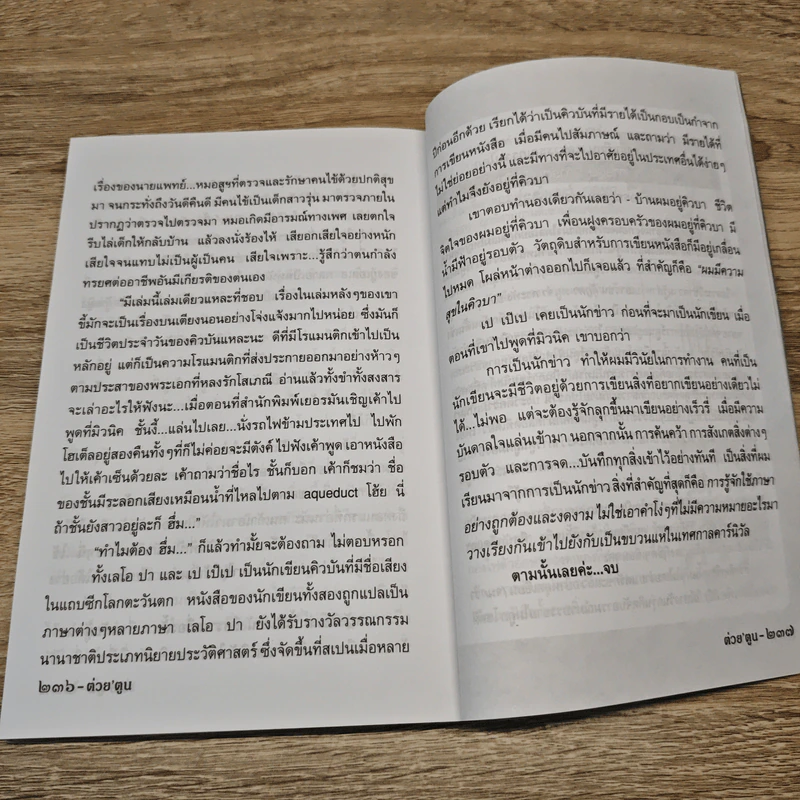 เรื่องของนายแพทย์...หมอสูฯที่ตรวจและรักษาคนไข้ด้วยปกติสุข
มา จนกระทั่งถึงวันดีคืนดี มีคนไข้เป็นเด็กสาวรุ่น มาตรวจภายใน
ปรากฏว่าตรวจไปตรวจมา หมอเกิดมีอารมณ์ทางเพศ เลยตกใจ
รีบไล่เด็กให้กลับบ้าน แล้วลงนั่งร้องไห้ เสียอกเสียใจอย่างหนัก
เสียใจจนแทบไม่เป็นผู้เป็นคน เสียใจเพราะ...รู้สึกว่าตนกำลัง
ทรยศต่ออาชีพอันมีเกียรติของตนเอง
“มีเล่มนี้เล่มเดียวแหละที่ชอบ เรื่องในเล่มหลังๆของเขา
ขี้มักจะเป็นเรื่องบนเตียงนอนอย่างโจ่งแจ้งมากไปหน่อย ซึ่งมันก็
เป็นชีวิตประจำวันของคิวบันแหละนะ ดีที่มีโรแมนติกเข้าไปเป็น
หลักอยู่ แต่ก็เป็นความโรแมนติกที่ส่งประกายออกมาอย่างห้าวๆ
ตามประสาของพระเอกที่หลงรักโสเภณี อ่านแล้วทั้งขำทั้งสงสาร
จะเล่าอะไรให้ฟังนะ...เมื่อตอนที่สำนักพิมพ์เยอรมันเชิญเค้าไป
พูดที่มิวนิค ชั้นงี้...แล่นไปเลย...นั่งรถไฟข้ามประเทศไป ไปพัก
โฮเต็ลอยู่สองคืนทั้งๆที่ก็ไม่ค่อยจะมีตังค์ ไปฟังเค้าพูด เอาหนังสือ
ไปให้เค้าเซ็นด้วยละ เค้าถามว่าชื่อไร ชั้นก็บอก เค้าก็ชมว่า ชื่อ
ของชั้นมีระลอกเสียงเหมือนน้ำที่ไหลไปตาม aqueduct โฮ้ย นี่
ถ้าชั้นยังสาวอยู่ละก็ ฮึ่ม...”
“ทำไมต้อง ฮึ่ม...” ก็แล้วทำมั้ยจะต้องถาม ไม่ตอบหรอก
ทั้งเลโอ ปา และ เป เป๊เป เป็นนักเขียนคิวบันที่มีชื่อเสียง
ในแถบซีกโลกตะวันตก หนังสือของนักเขียนทั้งสองถูกแปลเป็น
ภาษาต่างๆหลายภาษา เลโอ ปา ยังได้รับรางวัลวรรณกรรม
นานาชาติประเภทนิยายประวัติศาสตร์ ซึ่งจัดขึ้นที่สเปนเมื่อหลาย
๒๓๖ – ต่วย'ตูน
ปีก่อนอีกด้วย เรียกได้ว่าเป็นคิวบันที่มีรายได้เป็นกอบเป็นกำจาก
การเขียนหนังสือ เมื่อมีคนไปสัมภาษณ์ และถามว่า มีรายได้ที่
ไม่ใช่ย่อยอย่างนี้ และมีทางที่จะไปอาศัยอยู่ในประเทศอื่นได้ง่ายๆ
แต่ทำไมจึงยังอยู่ที่คิวบา
เขาตอบทำนองเดียวกันเลยว่า - บ้านผมอยู่คิวบา ชีวิต
จิตใจของผมอยู่ที่คิวบา เพื่อนฝูงครอบครัวของผมอยู่ที่คิวบา มี
น้ำมีฟ้าอยู่รอบตัว วัตถุดิบสำหรับการเขียนหนังสือก็มีอยู่เกลื่อน
ไปหมด โผล่หน้าต่างออกไปก็เจอแล้ว ที่สำคัญก็คือ “ผมมีความ
สุขในคิวบา”
เป เป๊เป เคยเป็นนักข่าว ก่อนที่จะมาเป็นนักเขียน เมื่อ
ตอนที่เขาไปพูดที่มิวนิค เขาบอกว่า
การเป็นนักข่าว ทำให้ผมมีวินัยในการทำงาน คนที่เป็น
นักเขียนจะมีชีวิตอยู่ด้วยการเขียนสิ่งที่อยากเขียนอย่างเดียวไม่
ได้...ไม่พอ แต่จะต้องรู้จักลุกขึ้นมาเขียนอย่างเร็วรี่ เมื่อมีความ
บันดาลใจแล่นเข้ามา นอกจากนั้น การค้นคว้า การสังเกตสิ่งต่างๆ
รอบตัว และการจด...บันทึกทุกสิ่งเข้าไว้อย่างทันที เป็นสิ่งที่ผม
เรียนมาจากการเป็นนักข่าว สิ่งที่สำคัญที่สุดก็คือ การรู้จักใช้ภาษา
อย่างถูกต้องและงดงาม ไม่ใช่เอาคำโง่ๆที่ไม่มีความหมายอะไรมา
วางเรียงกันเข้าไปยังกับเป็นขบวนแห่ในเทศกาลคาร์นิวัล
ตามนั้นเลยค่ะ...จบ
ต่วย'ตูน–๒๓๗